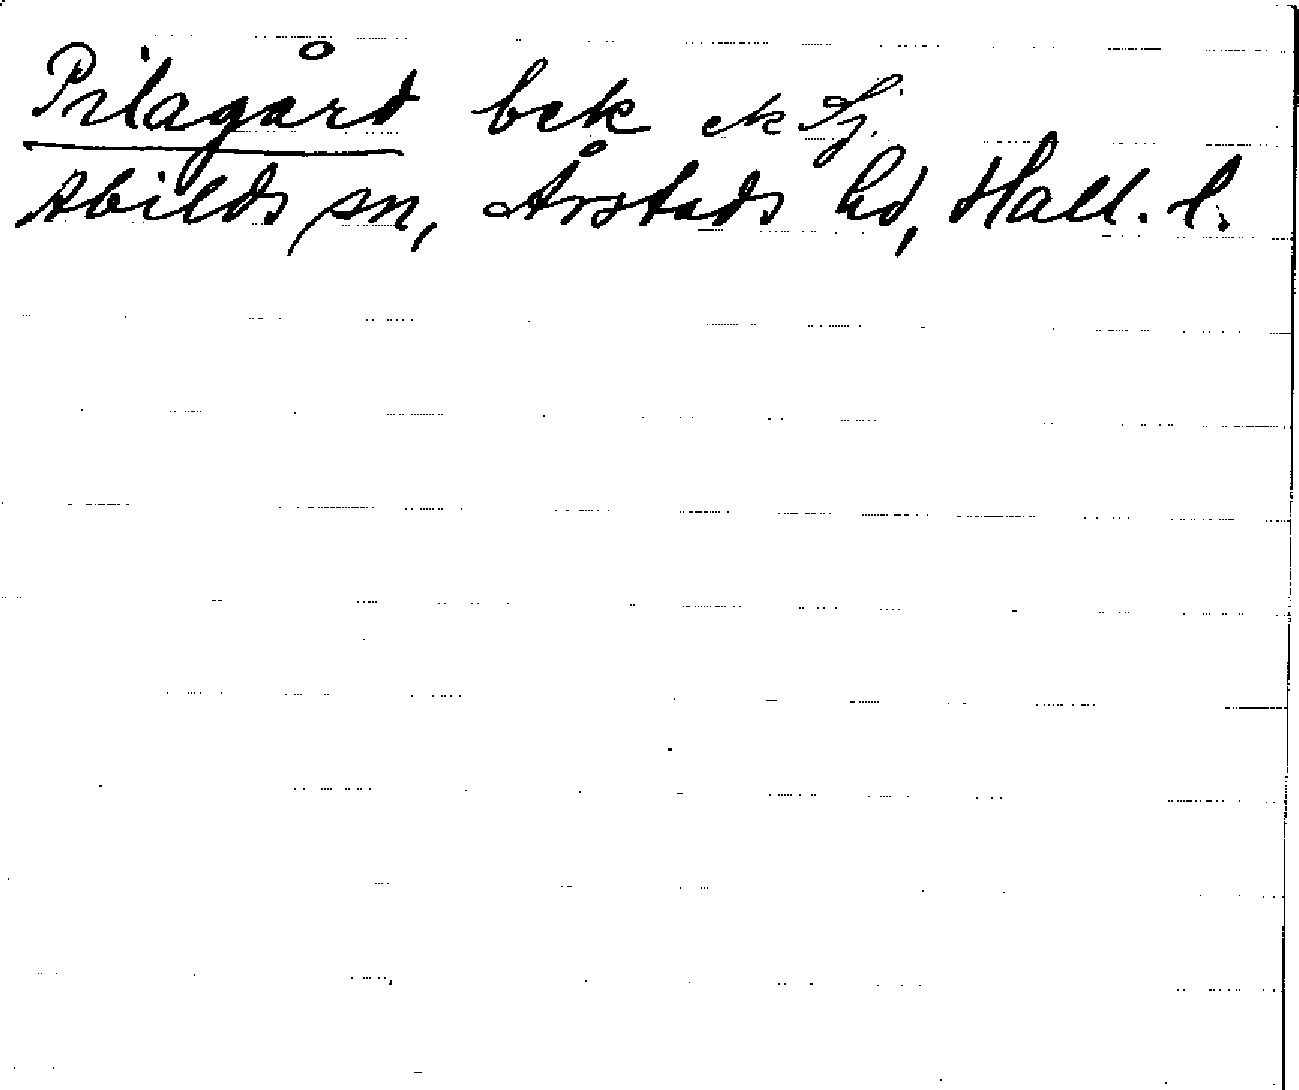 Pilagård bek ek Sj.
Abilds sn, Årstads hd, Hall. l.